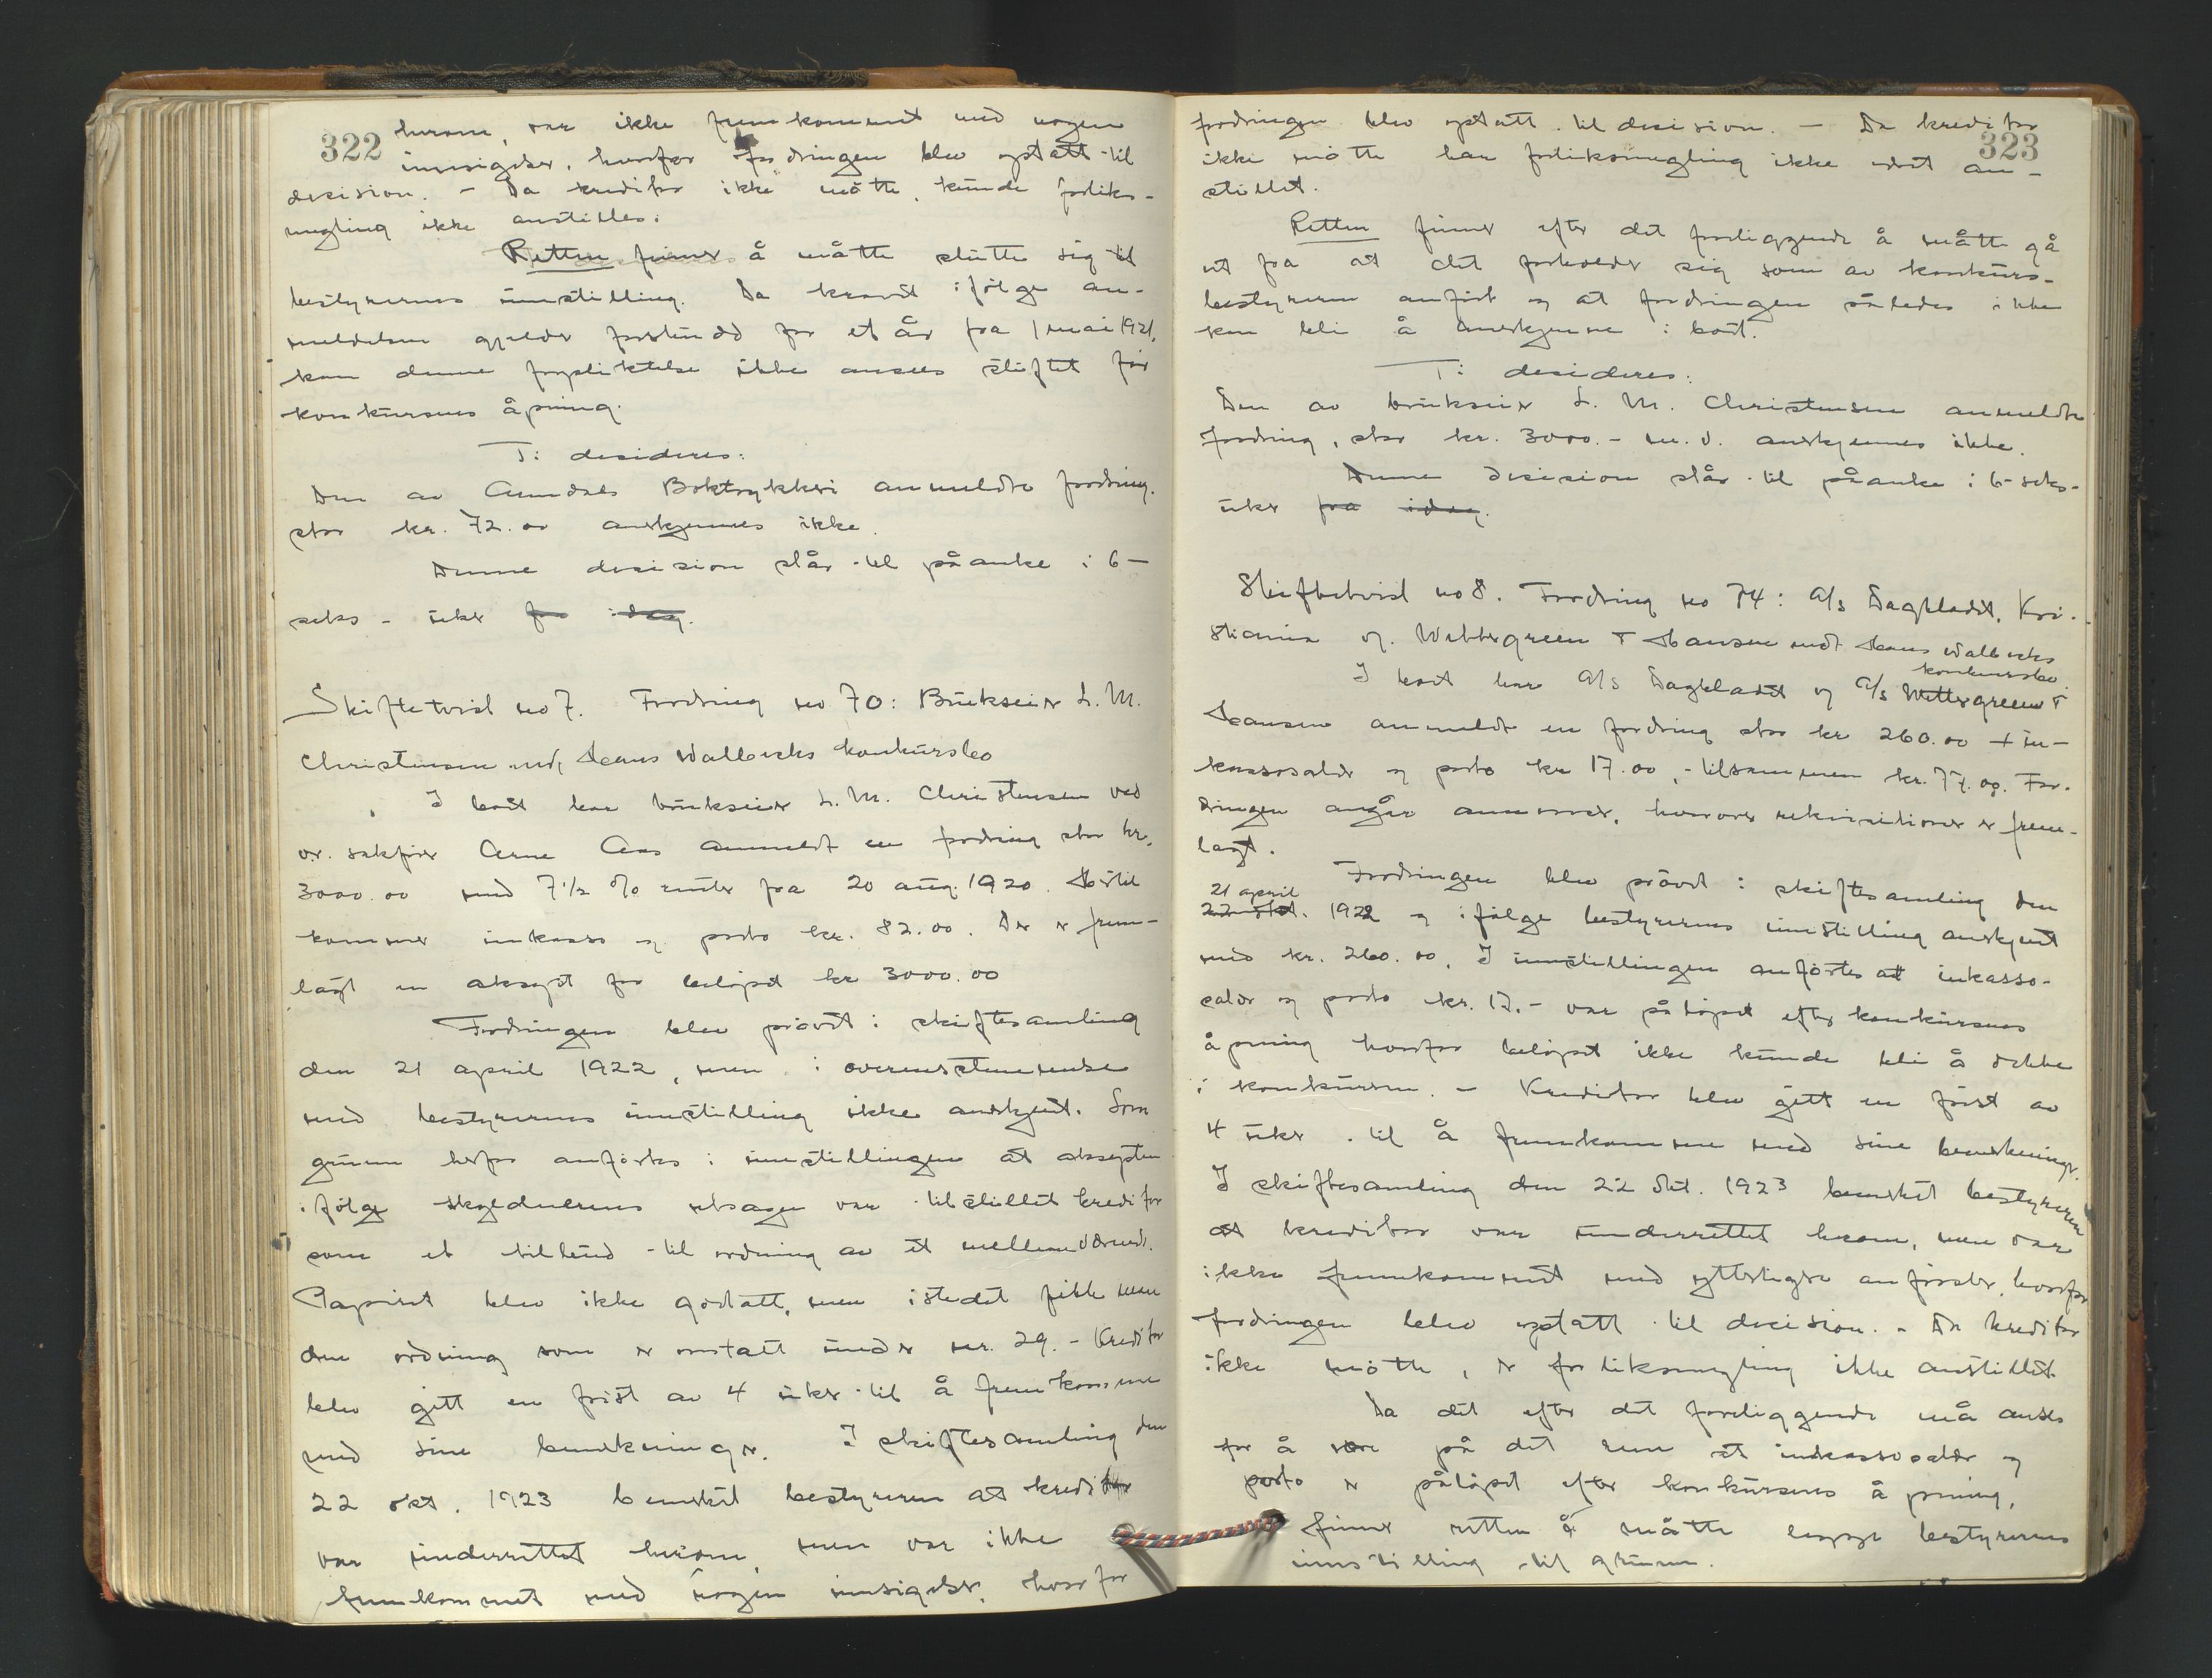 322
herom, var ikke fremkommet med nogen
innsigelser, hvorfor fordringen blev optatt til
decision. - Da kreditor ikke møtte, kunde forliks-
megling ikke anstilles.
Retten finner å måtte slutte sig til
bestyrerens innstilling. Da kravet ifølge an-
meldelsen gjelder forskudd for et år fra 1 mai 1921,
kan denne forpliktelse ikke ansees stiftet før
konkursens åpning.
Ti desideres:
Den av Arendals Boktrykkeri anmeldte fordring
stor kr. 72.00 anerkjennes ikke.
Denne decision står til påanke i 6 -
seks - uker fra idag.
Skiftetvist no 7. Fordring no 70: Brukseier L. M.
Christensen mot Hans Wallevicks konkursbo
I boet har brukseier L. M. Christensen ved
o.r. sakfører Arne Aas anmeldt en fordring stor kr.
3000.00 med 7½ % renter fra 20 aug. 1920. Hertil
kommer inkasso og porto kr. 82.00. Der er frem-
lagt en aksept for beløpet kr 3000.00
Fordringen blev prøvet i skiftesamling
den 21 april 1922, men i overensstemmelse
med bestyrerens innstilling ikke anerkjent. Som
grunn herfor anførtes i innstillingen at aksepten
ifølge skyldnerens utsagn var tilstillet kreditor
som et tilbud til ordning av et mellemværende.
Papiret blev ikke godtatt, men istedet fikk man
den ordning som er omtalt under nr. 29. - Kreditor
blev gitt en frist av 4 uker til å fremkomme
med sine bemerkninger. I skiftesamling den
22 okt. 1923 bemerket bestyreren at kreditor
var underrettet herom, men var ikke
fremkommet med nogen innsigelser, hvorfor
323
fordringen blev optatt til decision. - Da kreditor
ikke møtte har forliksmegling ikke vært an-
stillet.
Retten finner efter det foreliggende å måtte gå
ut fra at det forholder sig som av konkurs-
bestyreren anført og at fordringen således ikke
kan bli å anerkjenne i boet.
Ti desideres:
Den av brukseier L. M. Christensen anmeldte
fordring, stor kr. 3000.- m.v. anerkjennes ikke.
Denne decision står til påanke i 6 - seks-
uker fra idag.
Skiftetvist no 8. Fordring no 74: A/s Dagbladet, Kri-
stiania og Wettergreen & Hansen mot Hans Wallevicks
konkursbo.
I boet har A/s Dagbladet og A/s Wettergreen &
Hansen anmeldt en fordring stor kr 260.00 + in-
kassosalær og porto kr 17.00, - tilsammen kr. 77.00. For-
dringen angår annonser, hvorover rekvisitioner er frem-
lagt.
Fordringen blev prøvet i skiftesamling den
21 april
22 okt. 1922 og ifølge bestyrerens innstilling anerkjent
med kr. 260.00. I innstillingen anførtes at inkasso-
salær og porto kr. 17.- var påløpet efter konkursens
åpning hvorfor beløpet ikke kunde bli å dekke
i konkursen. - Kreditor blev gitt en frist av
4 uker til å fremkomme med sine bemerkninger.
I skiftesamling den 22 okt. 1923 bemerket bestyreren
at kreditor var underrettet herom, men var
ikke fremkommet med ytterligere anførsler, hvorfor
fordringen blev optatt til decision. - Da kreditor
ikke møtte, er forliksmegling ikke anstillet.
Da det efter det foreliggende må ansees
for å være på det rene at inkassosalær og
porto er påløpet efter konkursens åpning,
finner retten å måtte legge bestyrerens
innstilling til grunn.